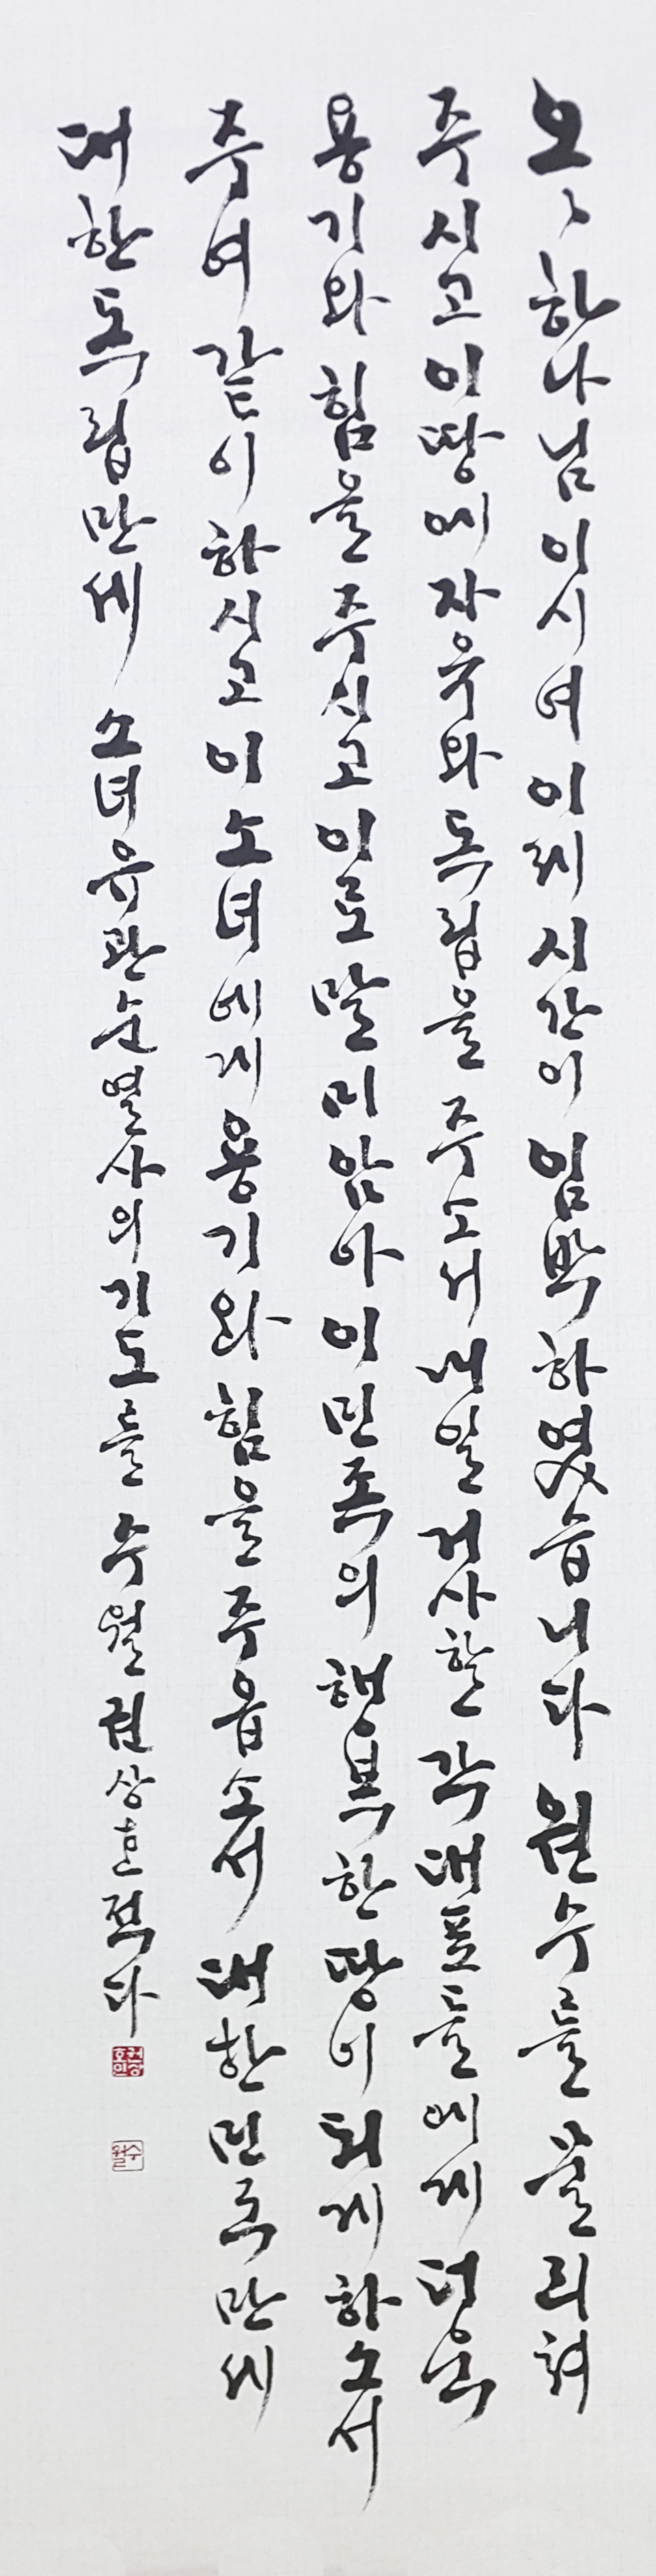 오、하나님이시여 이제 시간이 임박하였습니다 원수들 물리쳐
주시고 이 땅에 자유와 독립을 주소서 내일 거사할 각 대표들에게 더욱
용기와 힘을 주시고 이로 말미암아 이 민족의 행복한 땅이 되게 하소서
주여 같이 하시고 이 소녀에게 용기와 힘을 주옵소서 대한민족만세
대한독립만세 소녀 유관순열사의 기도를 수월 권상호 적다
권상호인
수월